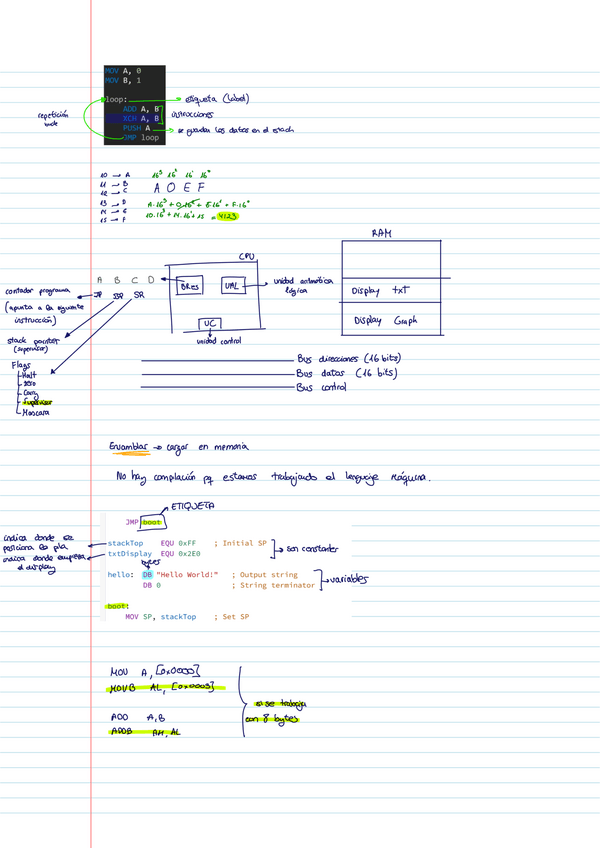 MOV A, 0
MOV B, 1
loop: → etiqueta (label)
ADD A, B
XCH A, B
instrucciones
repetición
bucle
PUSH A → se guardan los datos en el stack
JMP loop
10 → A 16³ 16² 16¹ 16⁰
11 → B A 0 E F
12 → C
13 → D A·16³ + 0·16² + E·16¹ + F·16⁰
14 → E 10·16³ + 14·16¹ + 15 = 4123
15 → F
RAM
CPU
A B C D
BRes
UAL
unidad aritmética
lógica
contador programa
IP SSP SR
(apunta a la siguiente
instrucción)
UC
unidad control
Display txt
Display Graph
stack pointer
(supervisor)
Flags
Halt
zero
Carry
Supervisor
Mascara
Bus direcciones (16 bits)
Bus datos (16 bits)
Bus control
Ensamblar → cargar en memoria
No hay compilación pq estamos trabajando el lenguaje máquina.
ETIQUETA
JMP boot
indica donde se
posiciona la pila
stackTop EQU 0xFF ; Initial SP
txtDisplay EQU 0x2E0
son constantes
indica donde empieza
el display
bytes
hello: DB "Hello World!" ; Output string
DB 0 ; String terminator
variables
boot:
MOV SP, stackTop ; Set SP
MOV A, [0x0000]
MOVB AL, [0x0003]
si se trabaja
con 8 bytes
ADD A, B
ADDB AH, AL